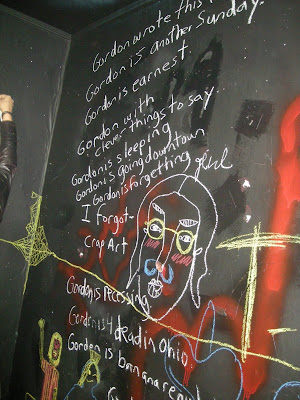 Gordon wrote this i
Gordon is another Sunday.
Gordon is earnest
Gordon with
clever things to say.
Gordon is sleeping
Gordon's going downtown
Gordon is forgetting
I forgot
Crap Art
Gordon is recessing
Gordon is 4 dead in Ohio.
Gorden is banana re